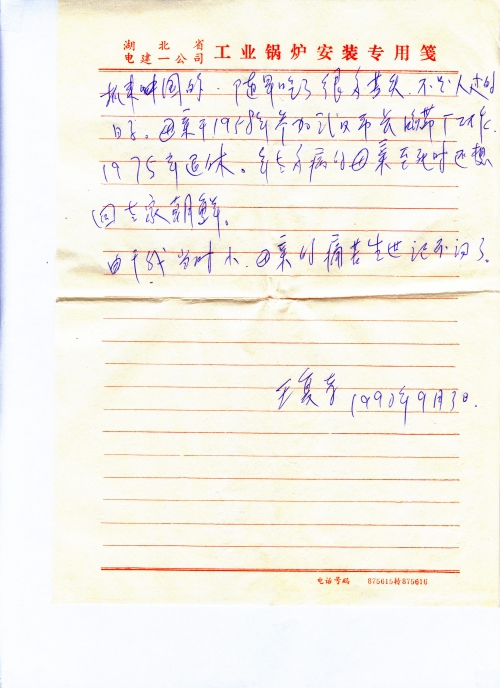 湖北省
电建一公司 工业锅炉安装专用笺
抓来中国的。随军吃了很多苦头，不是人过的
日子。母亲于1958年参加武汉市长的带厂工作，
1975年退休。年老多病的母亲至死时还想
回老家朝鲜。
由于我当时小，母亲的痛苦生世记不词了。
王复
1990年9月3日.
电话号码 875615转875616